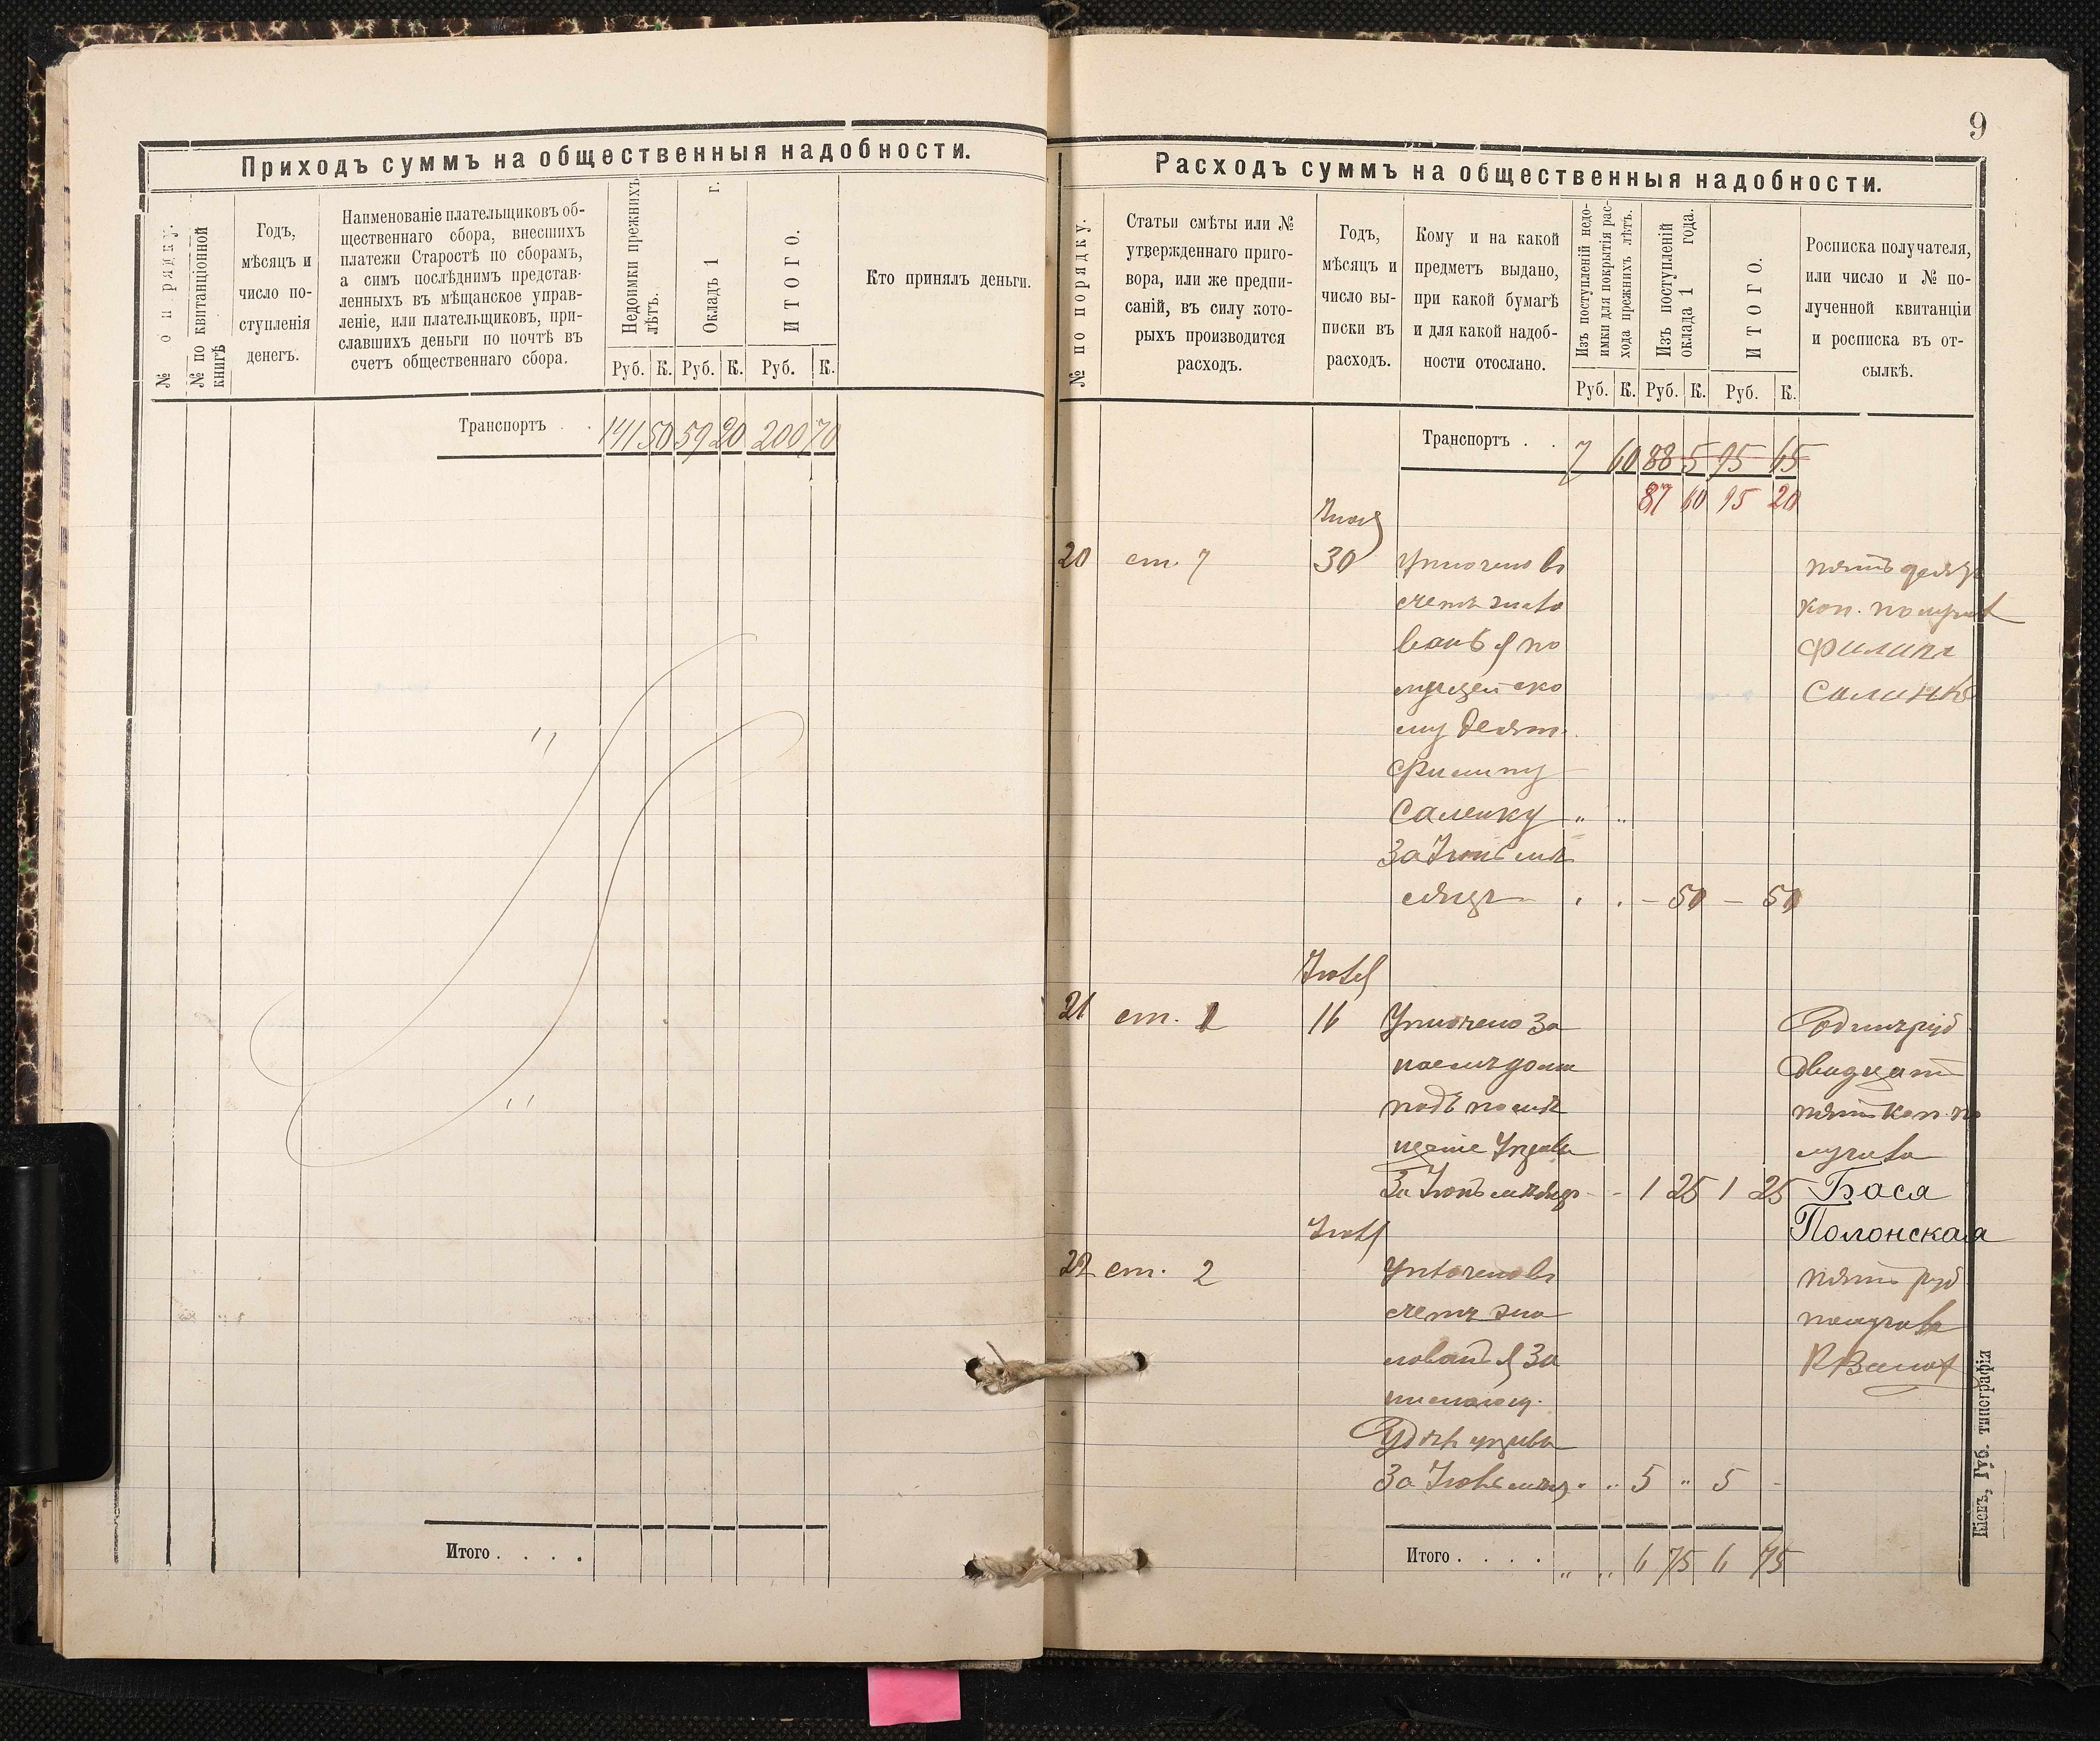 Приходъ суммъ на общественныя надобности.
№ по рядку.
№ по квитанціонной
книгѣ
Годъ,
мѣсяцъ и
число по-
ступленія
денегъ.
Наименованіе плательщиковъ об-
щественнаго сбора, внесшихъ
платежи Старостѣ по сборамъ,
а симъ послѣднимъ представ-
ленныхъ въ мѣщанское управ-
леніе, или плательщиковъ, при-
славшихъ деньги по почтѣ въ
счетъ общественнаго сбора.
Недоимки прежнихъ
лѣтъ.
Окладъ 1 г.
ИТОГО.
Кто принялъ деньги.
Руб. К. Руб. К. Руб. К.
Транспортъ . . 141 50 59 20 200 70
Итого . . . .
9
Расходъ суммъ на общественныя надобности.
№ по порядку.
Статьи смѣты или №
утвержденнаго приго-
вора, или же предпи-
саній, въ силу кото-
рыхъ производится
расходъ.
Годъ,
мѣсяцъ и
число вы-
писки въ
расходъ.
Кому и на какой
предметъ выдано,
при какой бумагѣ
и для какой надоб-
ности отослано.
Изъ поступленій недо-
имки для покрытія рас-
хода прежнихъ лѣтъ.
Изъ поступленій
оклада 1 года.
ИТОГО.
Росписка получателя,
или число и № по-
лученной квитанціи
и росписка въ от-
сылкѣ.
Руб. К. Руб. К. Руб. К.
Транспортъ . . 7 60 88 5 95 65
87 60 95 20
20 ст. 7 30 Уплочено въ
счетъ жало
ванья по
лицейско
му десят.
Филипу
Саленку
За Іюнь мѣ
сяцъ - 50 - 50
коп. получил
Филипъ
21 ст. 1 16 Уплочено за
наемъ дома
подъ помѣ
щеніе Управы
За Іюнь мѣсяцъ - - 1 25 1 25
Один руб
двадцать
пять коп. по
лучила
Бася
Полонская
22 ст. 2 Уплочено въ
счетъ жа
лованья За
За мѣсяц 5 5 -
пять руб
получил
Итого . . . . 6 75 6 75
Кіевъ, Губ. типографія